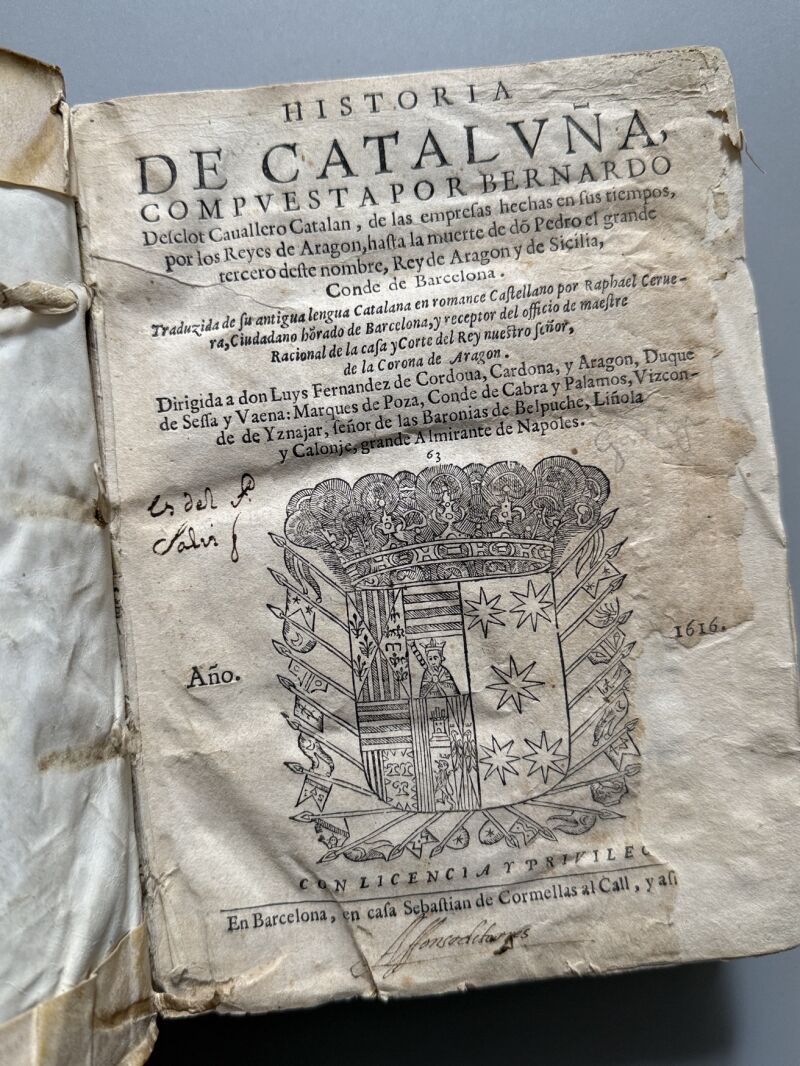 HISTORIA
DE CATALVÑA,
COMPVESTA POR BERNARDO
Deſclot Cauallero Catalan, de las empreſas hechas en ſus tiempos,
por los Reyes de Aragon, haſta la muerte de dõ Pedro el grande
tercero deſte nombre, Rey de Aragon y de Sicilia,
Conde de Barcelona.
Traduzida de ſu antigua lengua Catalana en romance Caſtellano por Raphael Cerue-
ra, Ciudadano hõrado de Barcelona, y receptor del officio de maeſtre
Racional de la caſa y Corte del Rey nueſtro ſeñor,
de la Corona de Aragon.
Dirigida a don Luys Fernandez de Cordoua, Cardona, y Aragon, Duque
de Seſſa y Vaena: Marques de Poza, Conde de Cabra y Palamos, Vizcon-
de de Yznajar, ſeñor de las Baronias de Belpuche, Liñola
y Calonje, grande Almirante de Napoles.
63
es del P.
Salis
Año.
1616.
CON LICENCIA Y PRIVILEG
En Barcelona, en caſa Sebaſtian de Cormellas al Call, y aſi